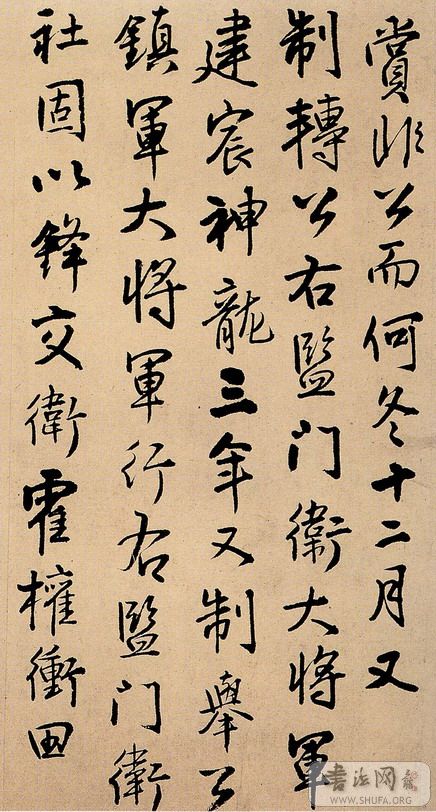 賞非公而何冬十二月又
制轉公右監门衛大將軍
建宸神龍三年又制舉公
鎮軍大將軍行右監门衛
社固以鋒交衛霍權衝田
書法网
WWW.SHUFA.ORG